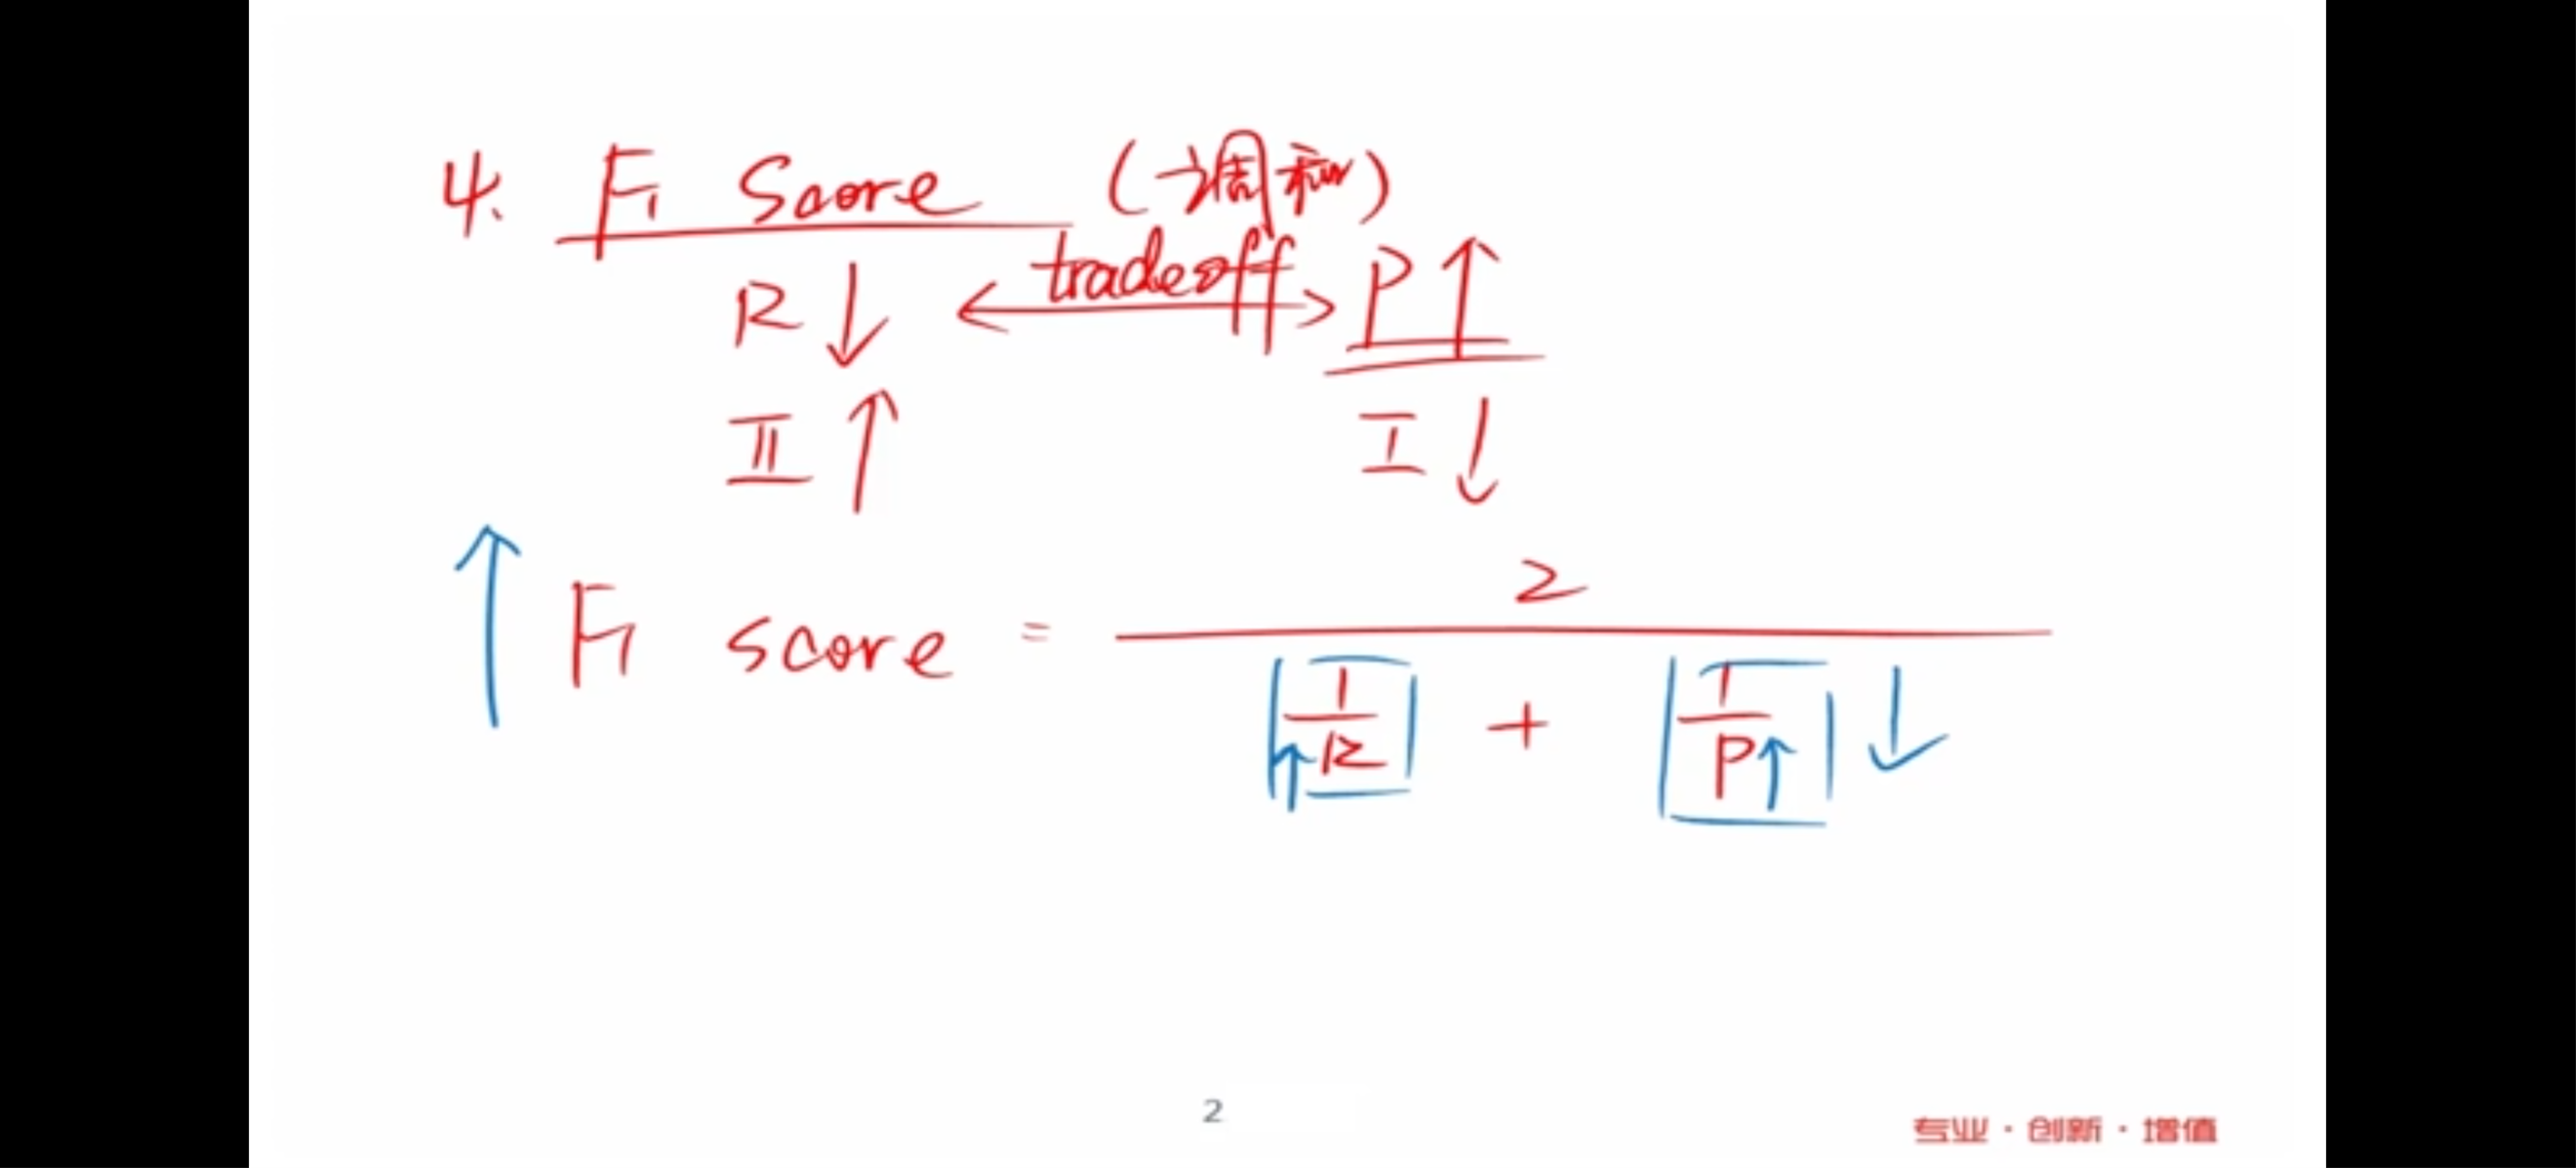 4. F1 Score (调和)
R↓ ←tradeoff→ P↑
II↑ I↓
↑ F1 score = 2 / (1/↑R + 1/P↑) ↓
2
专业·创新·增值